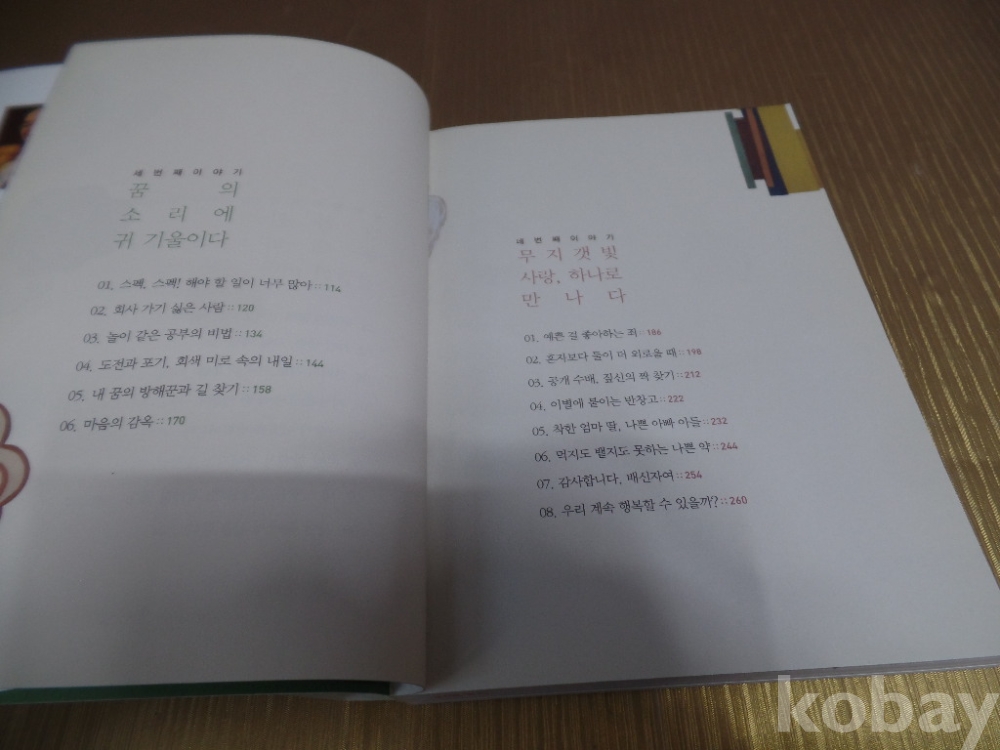 세번째이야기
꿈의
소리에
귀 기울이다
01. 스펙, 스펙! 해야 할 일이 너무 많아::114
02. 회사 가기 싫은 사람::120
03. 놀이 같은 공부의 비법::134
04. 도전과 포기, 회색 미로 속의 내일::144
05. 내 꿈의 방해꾼과 길 찾기::158
06. 마음의 감옥::170
세번째이야기
무지갯빛
사랑, 하나로
만나다
01. 예쁜 걸 좋아하는 죄::186
02. 혼자보다 둘이 더 외로울 때::198
03. 공개 수배, 짚신의 짝 찾기::212
04. 이별에 붙이는 반창고::222
05. 착한 엄마 딸, 나쁜 아빠 아들::232
06. 먹지도 뱉지도 못하는 나쁜 약::244
07. 감사합니다, 배신자여::254
08. 우리 계속 행복할 수 있을까?::260
kobay